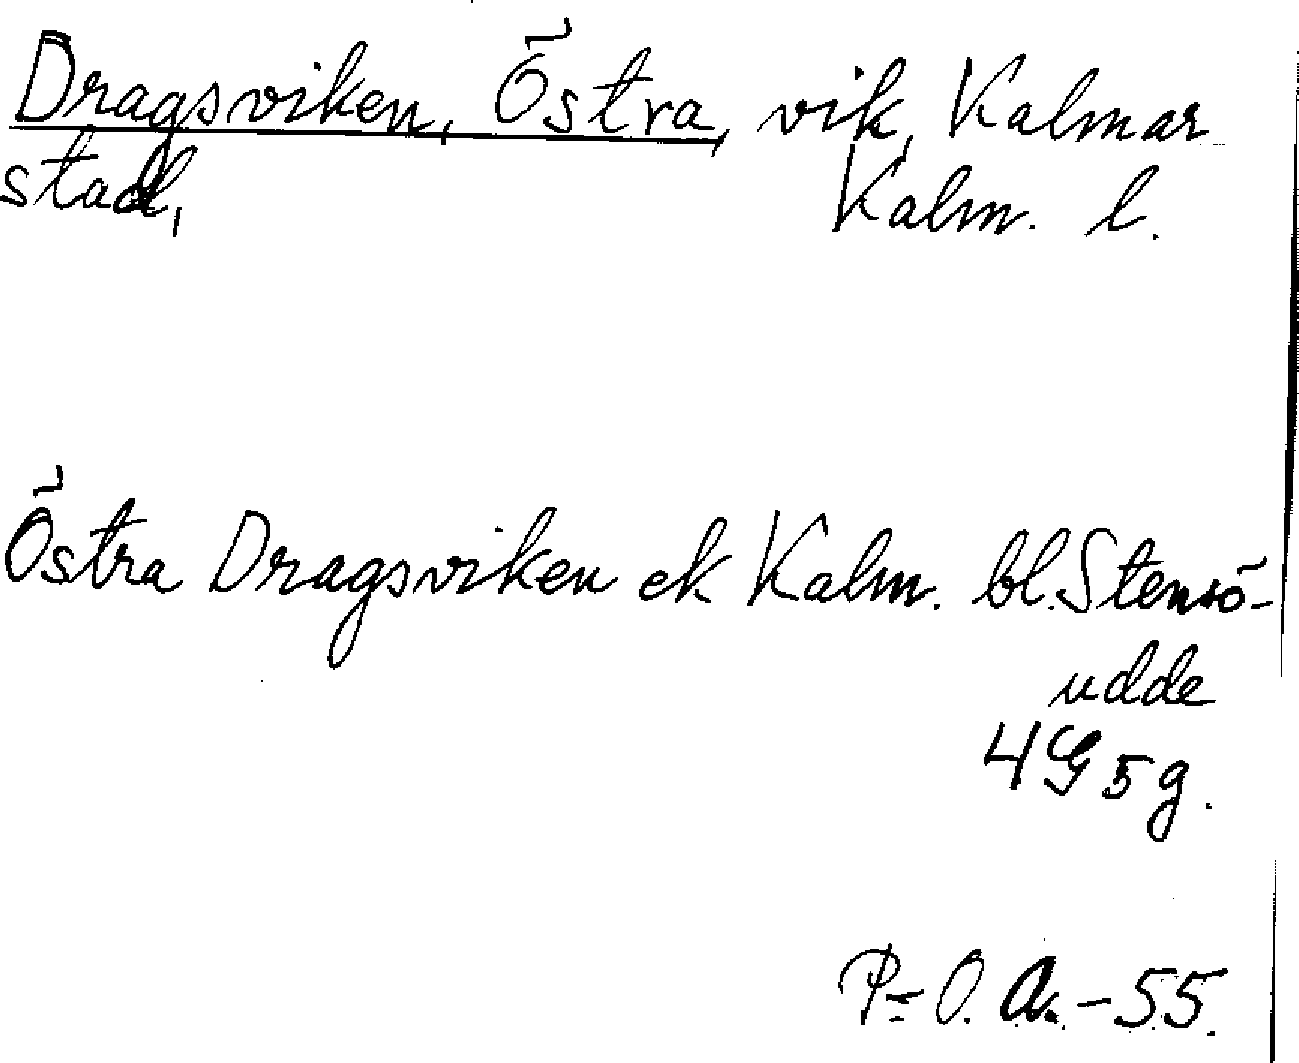 Dragsviken, Östra, vik, Kalmar
stad, Kalm. l.
Östra Dragsviken ek Kalm. bl. Stensö-
udde
4G5g.
P-O. A. -55.